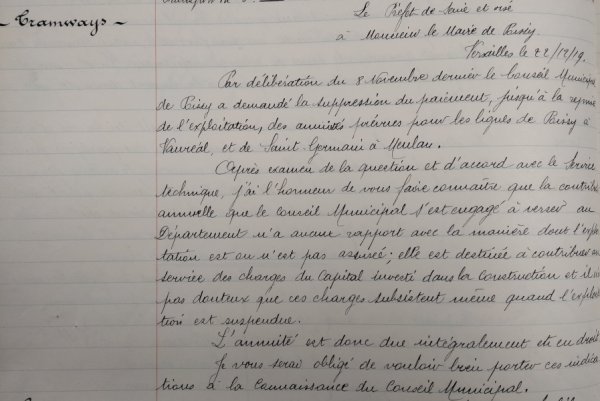 Tramways
Le Préfet de Seine et Oise
à Monsieur le Maire de Poissy.
Versailles le 22/12/19.
Par délibération du 8 Novembre dernier le Conseil Municipal
de Poissy a demandé la suppression du paiement, jusqu'à la reprise
de l'exploitation, des annuités prévues pour les lignes de Poissy à
Vauréal, et de Saint-Germain à Meulan.
Après examen de la question et d'accord avec le Service
technique, j'ai l'honneur de vous faire connaître que la contribu
annuelle que le Conseil Municipal s'est engagé à verser au
Département n'a aucune rapport avec la manière dont l'explo
tation est ou n'est pas assurée; elle est destinée à contribuer au
service des charges du Capital investi dans la Construction et il n'
pas douteux que ces charges subsistent même quand l'exploi
tion est suspendue.
L'annuité est donc due intégralement et en droit
Je vous serai obligé de vouloir bien porter ces indica
tions à la Connaissance du Conseil Municipal.